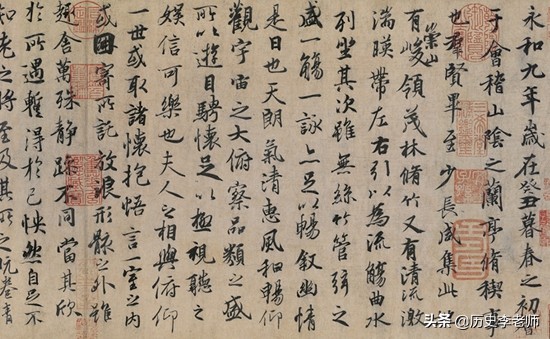 永和九年歲在癸丑暮春之初會
于會稽山陰之蘭亭脩稧事
也群賢畢至少長咸集此地
有崇山峻領茂林脩竹又有清流激
湍暎帶左右引以為流觴曲水
列坐其次雖無絲竹管弦之
盛一觴一詠亦足以暢敘幽情
是日也天朗氣清惠風和暢仰
觀宇宙之大俯察品類之盛
所以遊目騁懷足以極視聽之
娛信可樂也夫人之相與俯仰
一世或取諸懷抱悟言一室之內
或因寄所託放浪形骸之外雖
趣舍萬殊靜躁不同當其欣
於所遇暫得於己怏然自足不
知老之將至及其所之既惓情
头条 @历史李老师